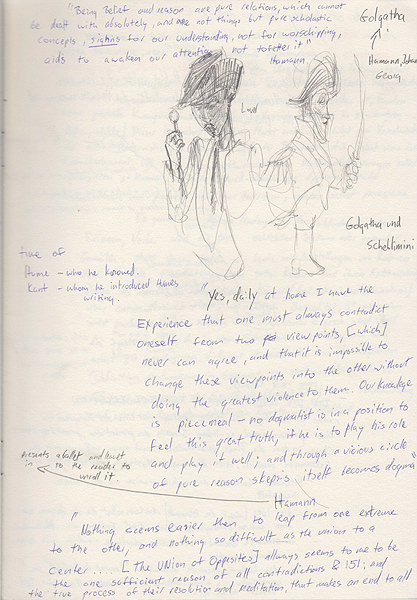 "Being Belief and reason are pure relations, which cannot
be dealt with absolutely, and are not things but pure scholastic
concepts, signs for our understanding, not for worshipping,
aids to awaken our attention, not to fetter it"
Hamann.
Golgatha
Hamann, Johan
Georg
Golgatha und
Scheblimini
time of
Hume - who he
Kant - whom he introduced Humes
writing.
"Yes, daily at home I have the
Experience that one must always contradict
oneself from two viewpoints, [which]
never can agree, and that it is impossible to
change these viewpoints into the other without
doing the greatest violence to them. Our knowledge
is piecemeal - no dogmatist is in a position to
feel this great truth, if he is to play his role
and play it well; and through a vicious circle
of pure reason skepsis itself becomes dogma"
presents a
in to the reader to
unroll it.
Hamann
"Nothing seems easier than to leap from one extreme
to the other, and nothing so difficult as the union to a
center.... [The Union of Opposites] allways seems to me to be
the one sufficient reason of all contradictions & and
the true process of their resolution and meditation, that makes an end to all